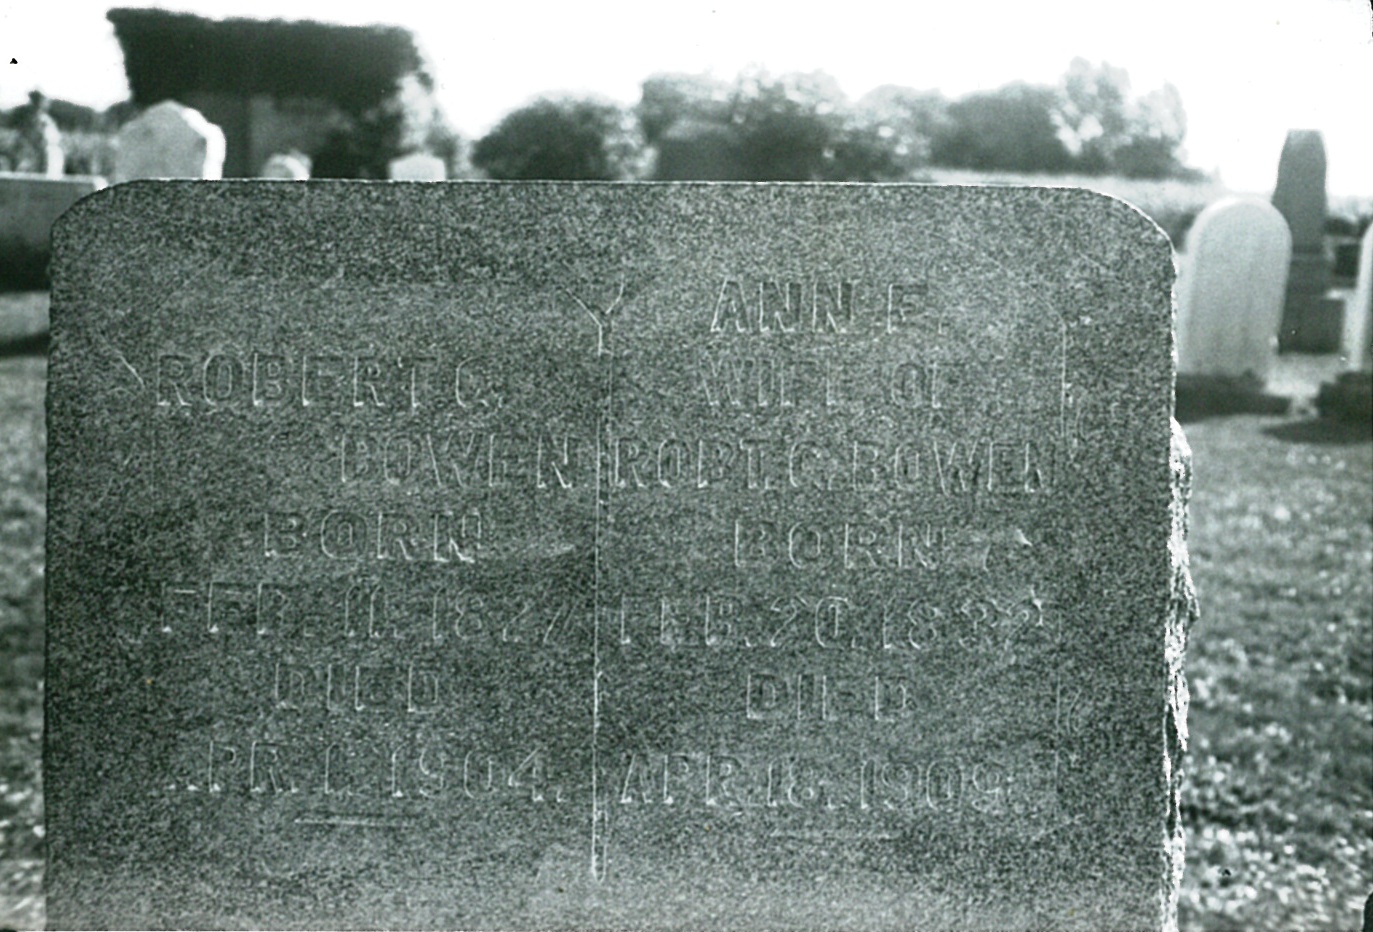 ROBERT C.
BOWEN
BORN
FEB. 11. 1827
DIED
APR 1. 1904.
ANN F.
WIFE OF
ROBT. C. BOWEN
BORN
FEB. 20. 1832
DIED
APR. 18. 1909.